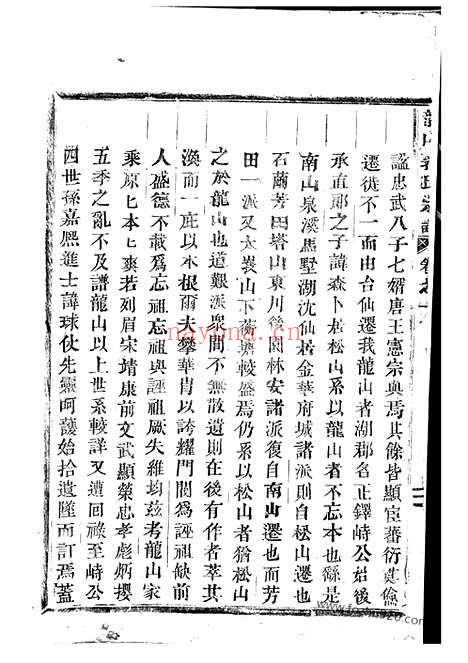 諡忠武八子七婿唐王憲宗與焉其餘皆顯宦蕃衍其儋
遷徙不一而由台仙遷我龍山者湖郡名正鐸峙公始後
承直郎之子諱森卜居松山系以龍山者不忘本也繇是
南山泉溪馬墅湖沈仙居金華府城諸派則自松山遷也
石蘭芳田塔山東川後園林安諸派復自南山遷也而芳
田一派又太裴山下衡塘較盛焉仍系以松山者猶松山
之於龍山也道艱派衆間不無散遺則在後有作者萃其
渙而一庇以本根爾夫攀華胄以誇耀門閥爲誣祖缺前
人盛德不載爲忘祖忘祖與誣祖厥失維均茲考龍山家
乘原上本上爽若列眉宋靖康前文武顯榮忠孝彪炳攖
五季之亂不及譜龍山以上世系較詳又遭回祿至峙公
四世孫嘉熙進士諱球仗先靈呵護始拾遺墜而訂焉蓋
www.zupu.cn